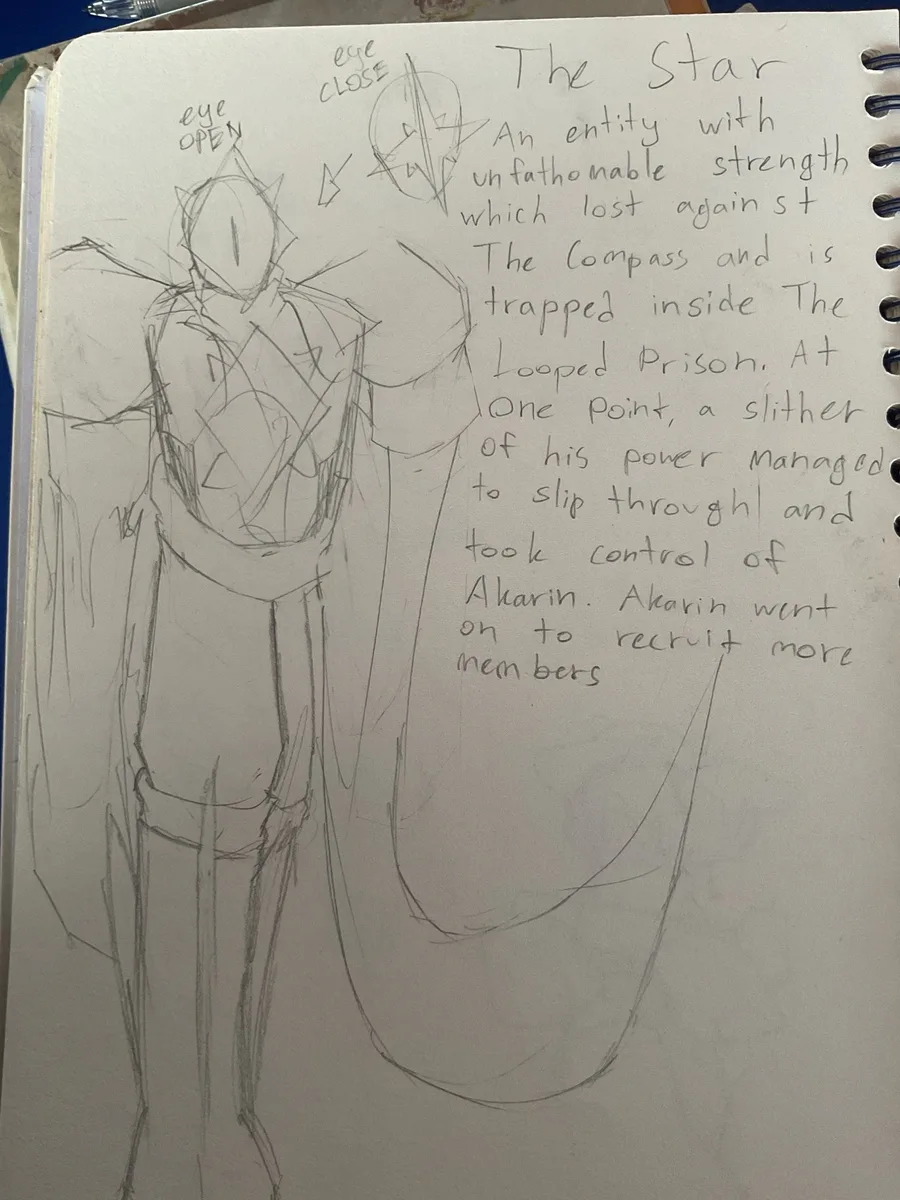 eye
CLOSE
eye
OPEN
The Star
An entity with
unfathomable strength
which lost against
The Compass and is
trapped inside The
Looped Prison. At
One point, a slither
of his power managed
to slip through and
took control of
Akarin. Akarin went
on to recruit more
members